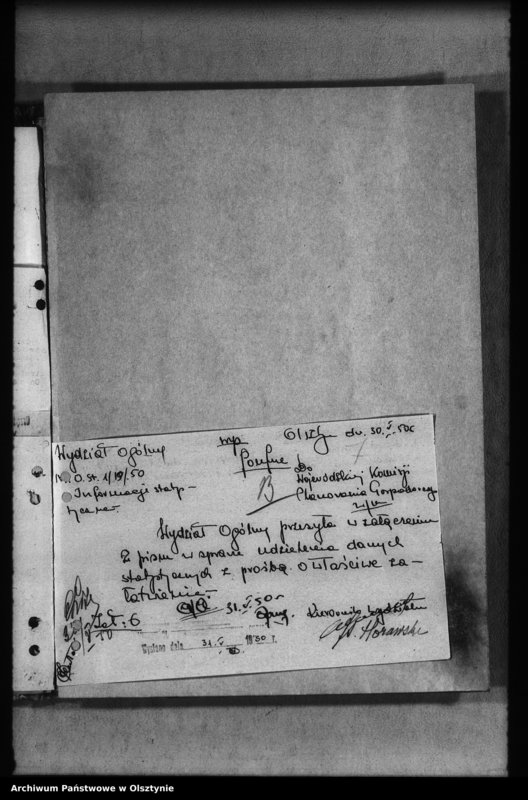 Wydział Ogólny
mp.
Olsztyn dn. 30.V.50r
Nr. O. st. 1/19/50
Poufne!
Do
Informacje staty-
Wojewódzkiej Komisji
Planowania Gospodarczego
w/m
B
Wydział Ogólny przesyła w załączeniu
2 pisma w sprawie udzielenia danych
statystycznych z prośbą o właściwe za-
łatwienie.-
31.V.50r.
Zał: 6
Kierownik Wydziału
Wysłano dnia 31.V 1950 r.
Archiwum Państwowe w Olsztynie